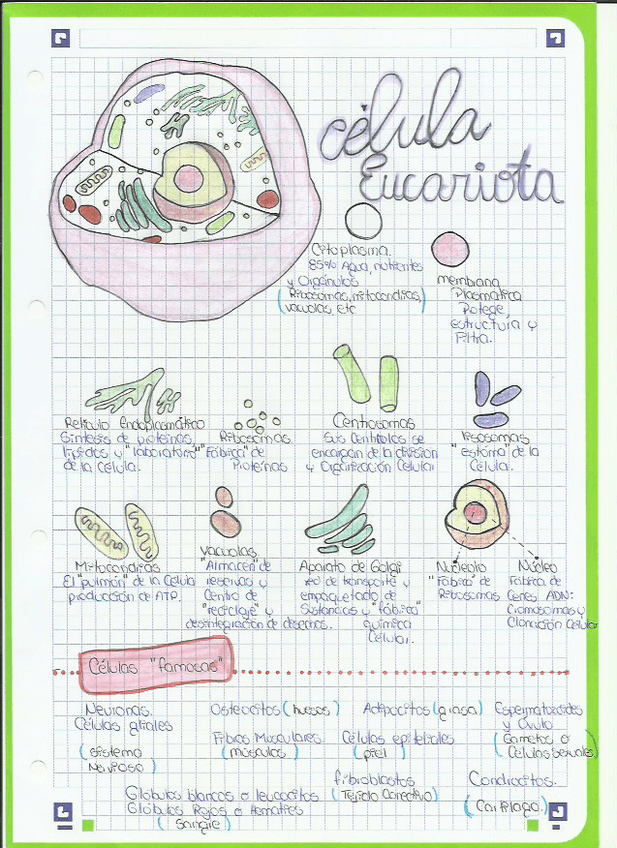 Célula
Eucariota
Citoplasma.
85% Agua, nutrientes
y Orgánulos
(Ribosomas, mitocondrias,
vacuolas, etc)
membrana
Plasmatica
Protege,
estructura y
Filtra.
Reticulo Endoplasmático
Sintesis de proteinas,
lipidos y "laboratorio"
de la Célula.
Ribosomas
"Fábrica" de
Proteinas
Centrosomas
Sus Centriolos se
encargan de la division
y Organización Celular
lisosomas
"estoma" de la
Célula.
Mitocondrias
El "pulmón" de la Celula
producción de ATP.
vacuolas
"Almacen" de
reservas y
Centro de
"reciclaje" y
desintegración de desechos.
Aparato de Golgi
red de transporte y
empaquetado de
Sustancias y "fábrica"
química
Célular.
Nucleolo
"Fabrica" de
Ribosomas
Núcleo
Fabrica de
Genes ADN:
Cromosomas y
Clonación Celular
Células "famosas"
Neuronas.
Células gliales
(sistema
Nervioso)
Osteocitos (huesos)
Fibras Musculares
(músculos)
Adipocitos (grasa)
Células epiteliales
(piel)
Espermatozoides
y Óvulo
(Gametos o
Células sexuales)
fibroblastos
(Tejido Conectivo)
Condrocitos.
(Cartilago)
Glóbulos blancos o leucocitos
Glóbulos Rojos o hematies
(Sangre)